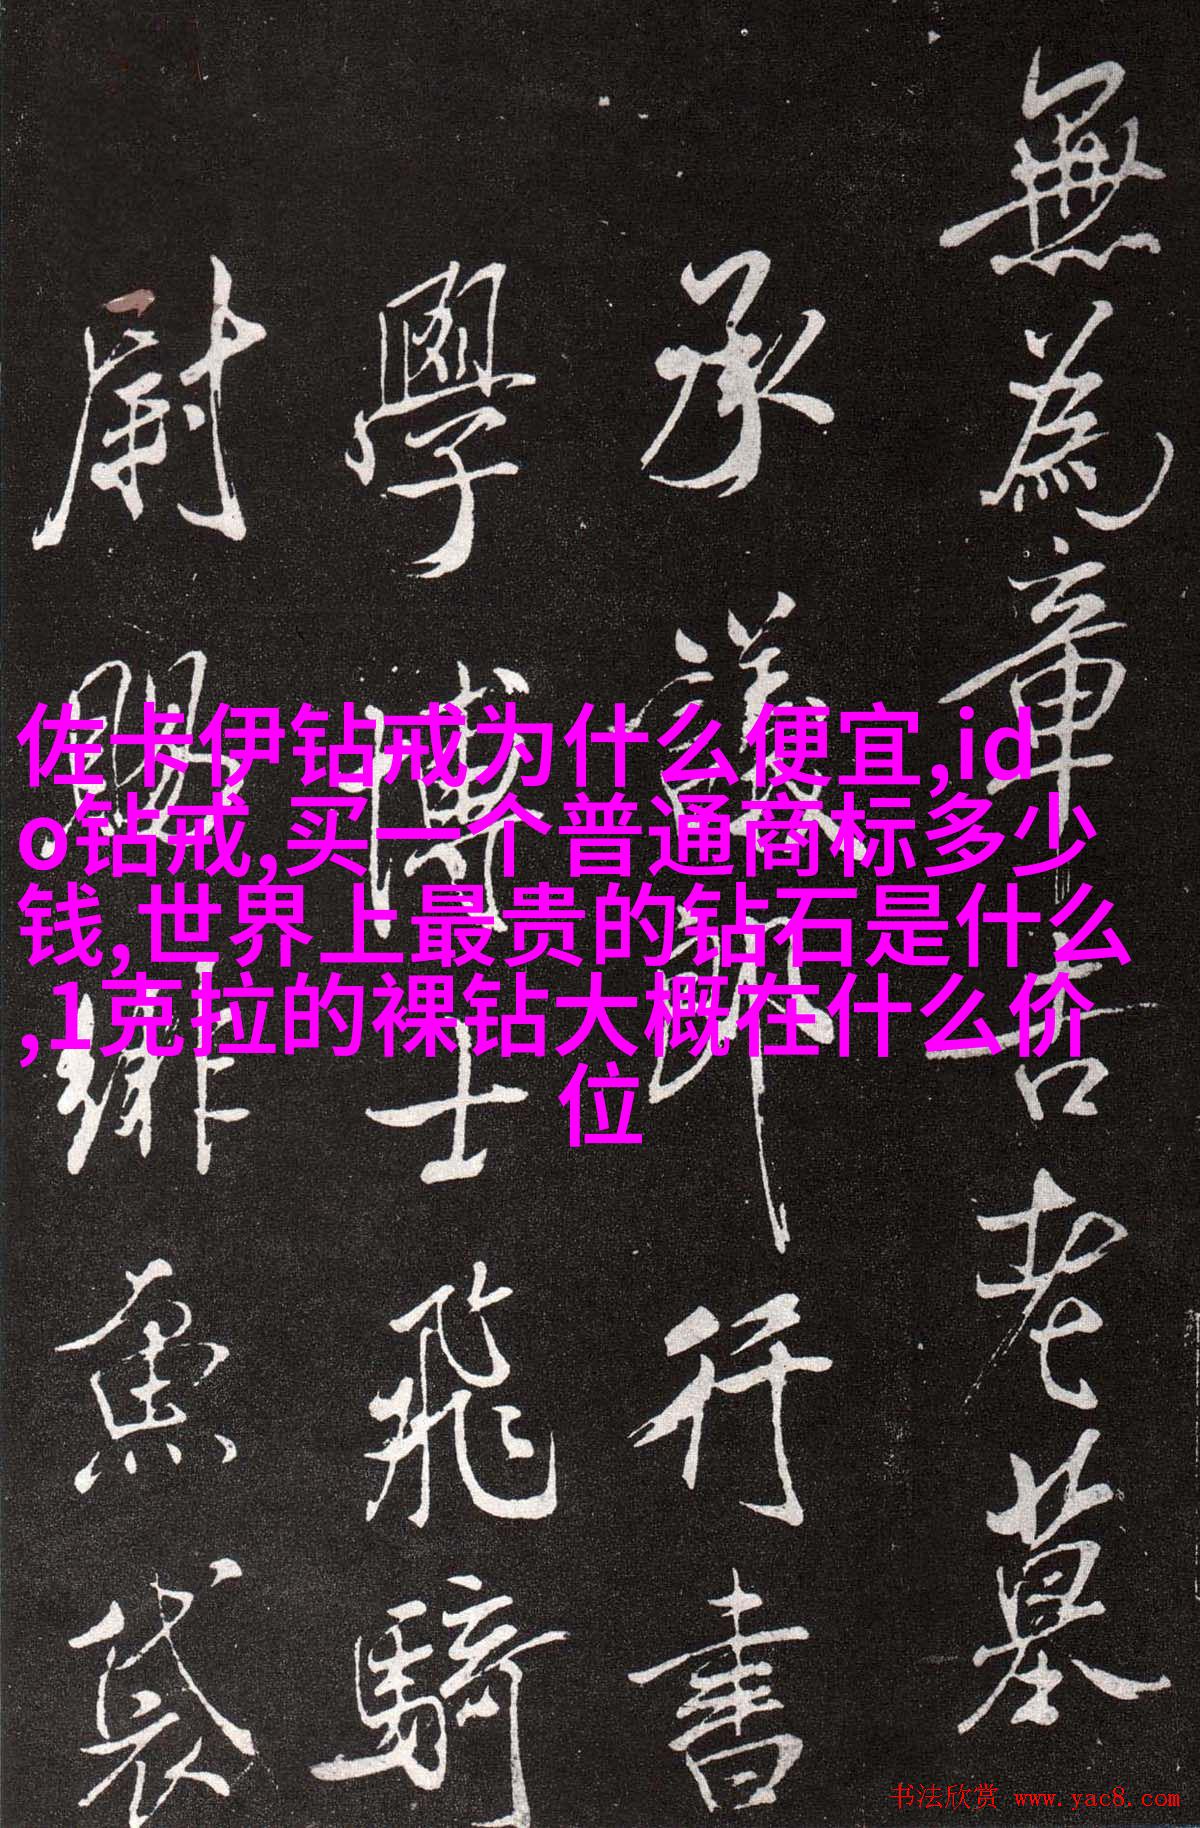 無為章吉老墓
承議郎行書
學博士飛騎
尉賜緋魚袋
佐卡伊钻戒为什么便宜,id
o钻戒,买一个普通商标多少
钱,世界上最贵的钻石是什么
,1克拉的裸钻大概在什么价
位
书法欣赏 www.yac8.com